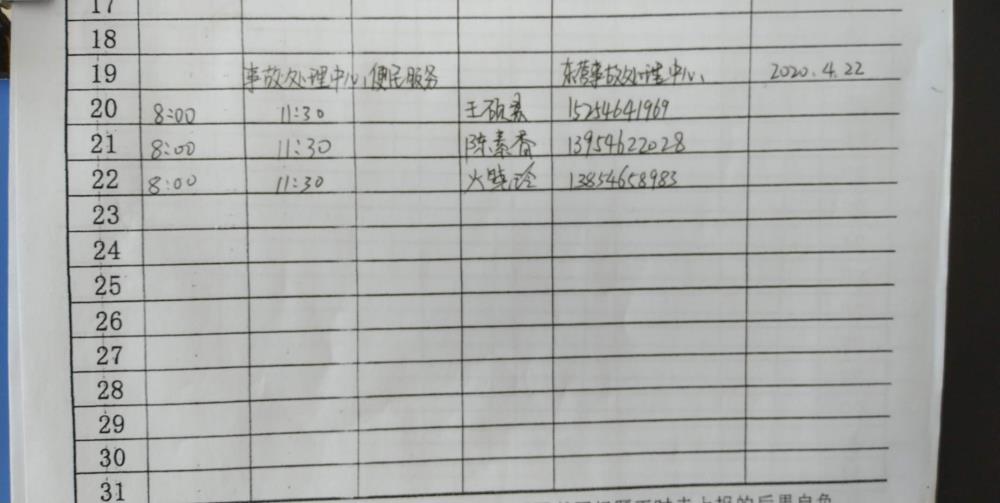 17
18
19 事故处理中心便民服务 东营事故处理中心 2020.4.22
20 8:00 11:30 15254641969
21 8:00 11:30 陈素香 13954622028
22 8:00 11:30 13854658983
23
24
25
26
27
28
29
30
31